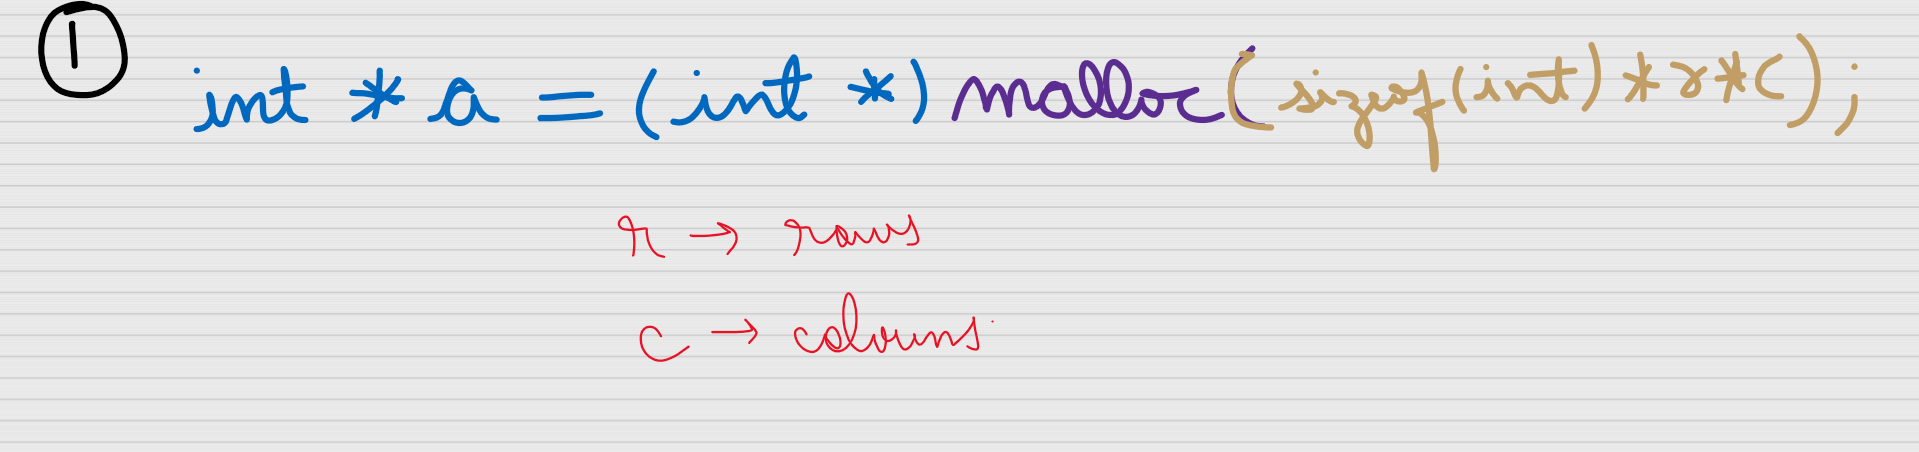 ①
int * a = (int *) malloc(sizeof(int) * r * c);
r → rows
c → columns